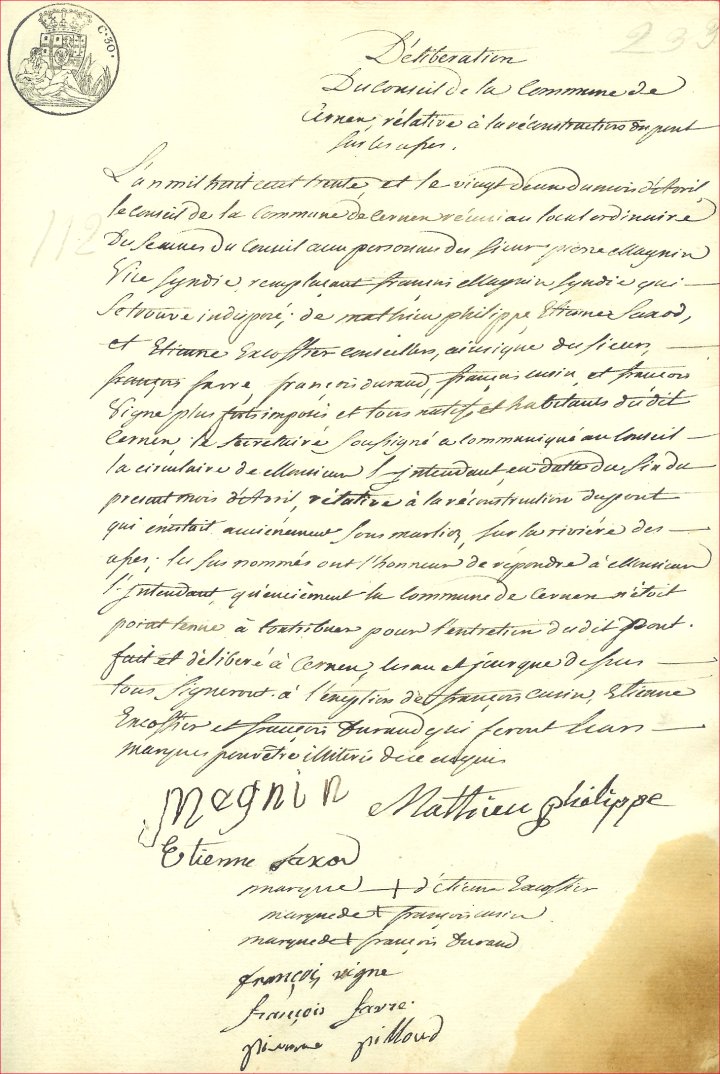 C. 30.
233
112
Déliberation
Du Conseil de la Commune de
Cernex, rélative à la réconstruction du pont
sur les usses.
L'an mil huit cent trente, et le vingt deux du mois d'Avril
le Conseil de la Commune de Cernex réuni au local ordinaire
Des Seances du Conseil aux personnes des sieur pierre Magnin
Vice Syndic, remplaçant françois Magnin Syndic qui
se trouve indisposé; de mathieu philippe, Etienne Saxod,
et Etienne Excoffier conseillers, ainsi que des sieurs
françois favre françois durand, françois cusin, et françois
Vigne plus forts imposés et tous natifs et habitants du dit
Cernex; le Secretaire soussigné a communiqué au Conseil
la circulaire de Monsieur l'jntendant en datte du six du
present mois d'Avril, rélative à la réconstruction du pont
qui éxistait anciénement sous marlioz, sur la riviére des
usses; les sus nommés ont l'honneur de répondre à Monsieur
l'jntendant, qu'enciénement la Commune de Cernex n'étoit
point tenue à Contribuer pour l'entretien du dit Pont.
fait et déliberé à Cernex, les an et jour que dessus
tous signeront à l'éxeption de françois cusin, Etienne
Excoffier et françois Durand qui feront leurs
marques pour être illiterés de ce enquis
Magnin Mathieu philippe
Etienne saxod
marque + d'étienne Excoffier
marque de + françois cusin
marque de + françois Durand
françois vigne
françois favre.
pilloud